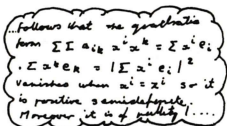 ...follows that the quadratic
form ΣΣ a_ik x^i x^k = Σ x^i e_i
. Σ x^k e_k = |Σ x^i e_i|²
vanishes when x^i = x^i so it
is positive semidefinite.
Moreover it is of nullity 1....